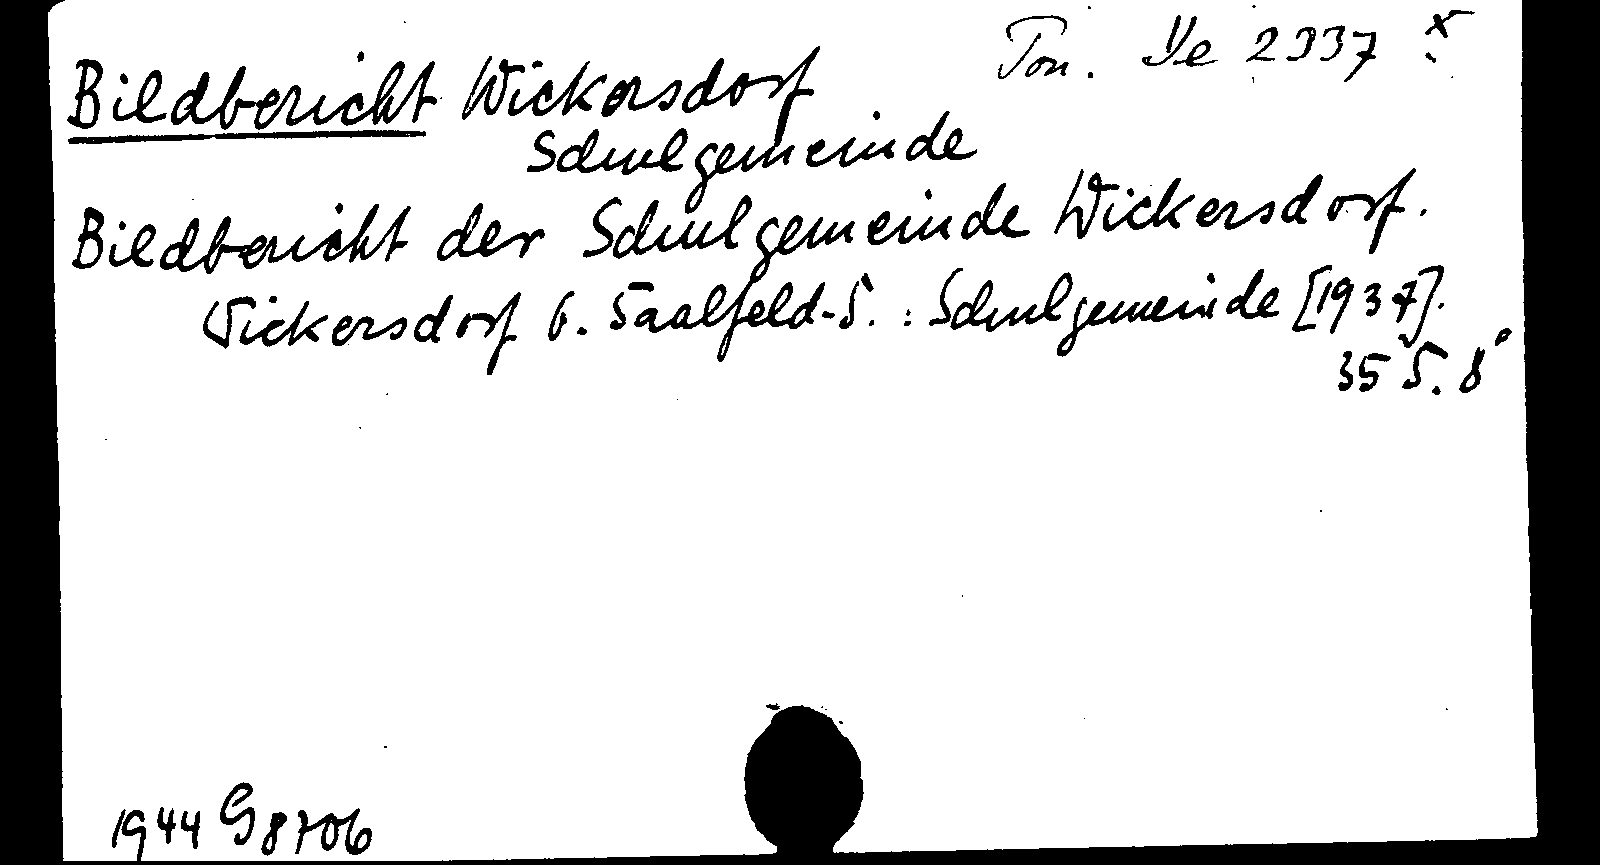 Pon. Ye 2337 x
Bildbericht Wickersdorf
Schulgemeinde
Bildbericht der Schulgemeinde Wickersdorf.
Wickersdorf b. Saalfeld-S. : Schulgemeinde [1937].
35 S. 8°
1944 G 8706